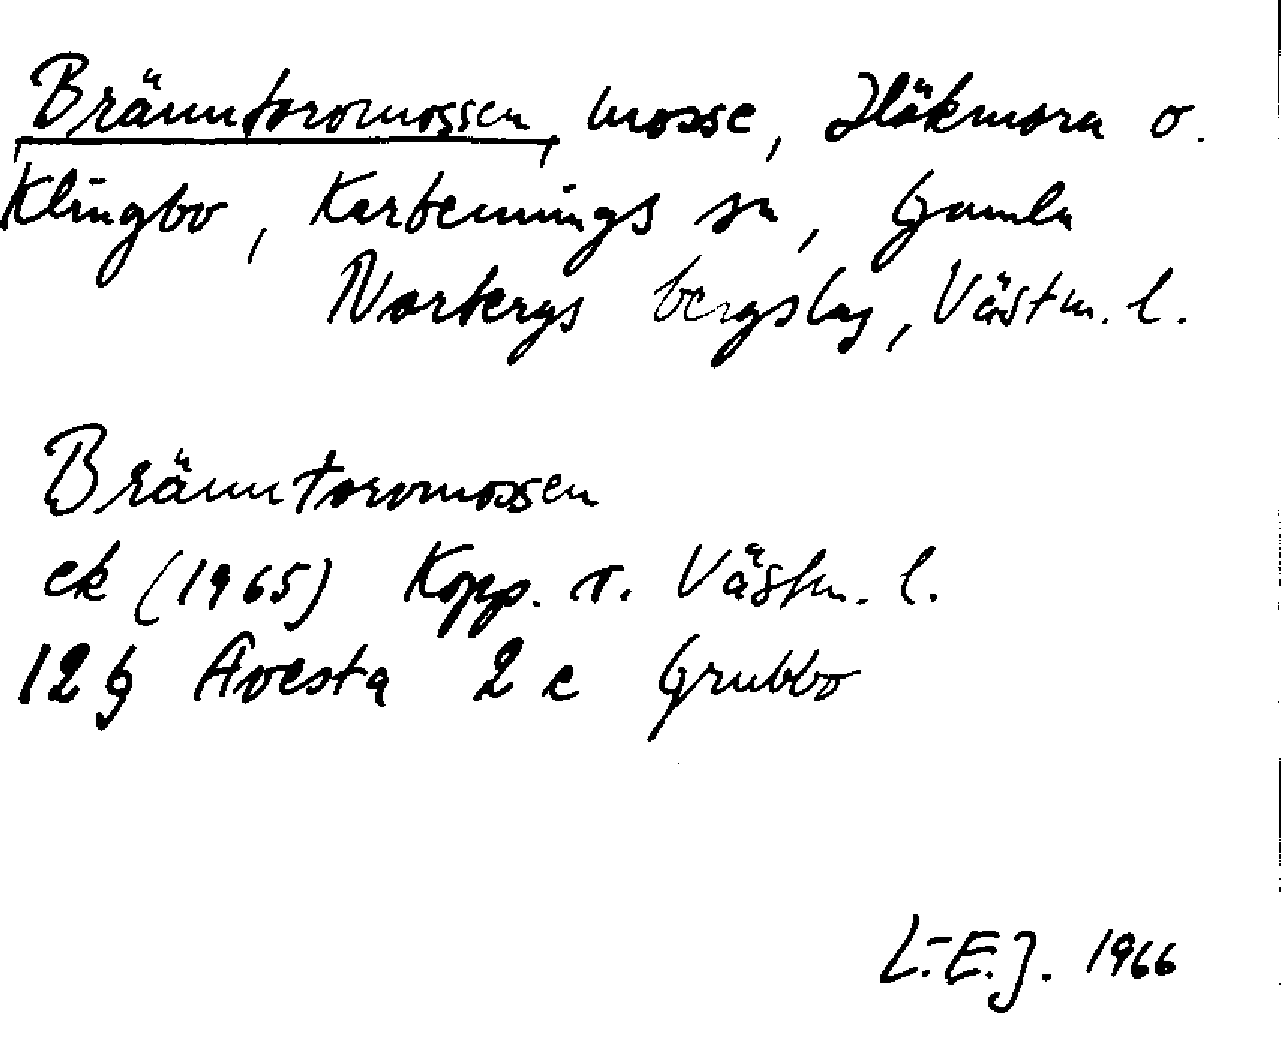 Bränntoromossen, mosse, Hökmora o.
Klingbo, Karbennings sn, Gamla
Norbergs bergslag, Västm. l.
Bränntoromossen
ek (1965) Kopp. o. Västm. l.
12 G Avesta 2 c Grubbo
L.-E.J. 1966